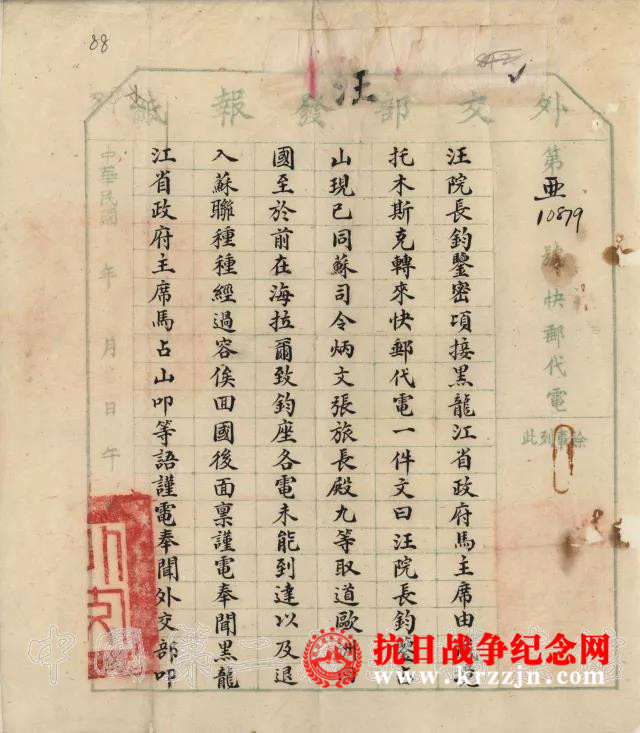 88
汪
外交部發報紙
第亞10879號快郵代電
汪院長鈞鑒密頃接黑龍江省政府馬主席由
托木斯克轉來快郵代電一件文曰汪院長鈞鑒占
山現已同蘇司令炳文張旅長殿九等取道歐洲回
國至於前在海拉爾致鈞座各電未能到達以及退
入蘇聯種種經過容俟回國後面稟謹電奉聞黑龍
江省政府主席馬占山叩等語謹電奉聞外交部叩
中華民國 年 月 日 午
抗日战争纪念网
www.krzzjn.com